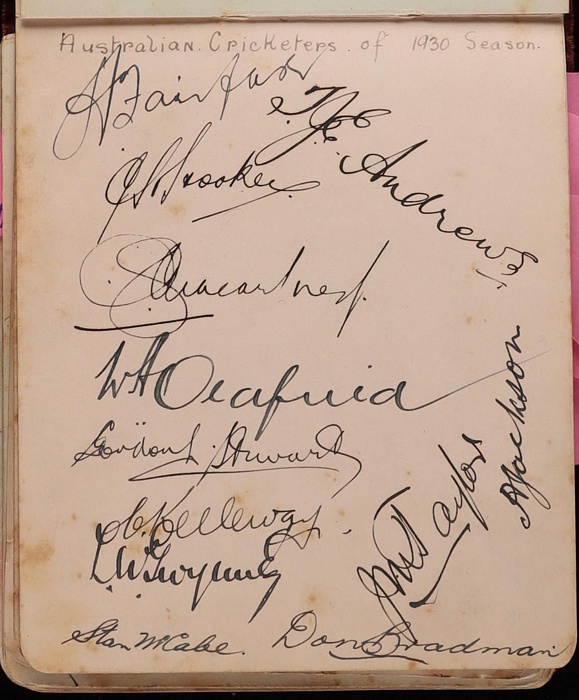 Australian Cricketers of 1930 Season.
A Fairfax
T.J.E. Andrews
C Macartney
W A Oldfield
A Jackson
Gordon L. Stewart
J M Taylor
C Kelleway.
L W Gwynne
Stan McCabe.
Don Bradman